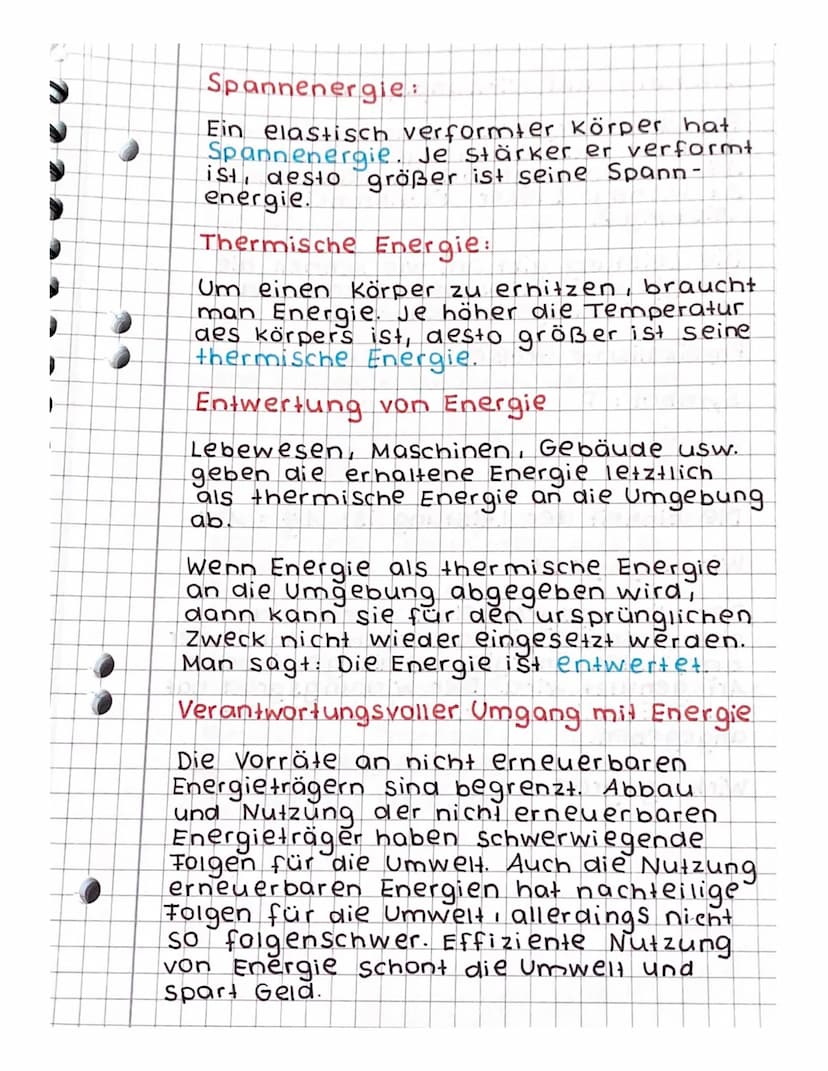 Spannenergie:
Ein elastisch verformter Körper hat
Spannenergie. Je stärker er verformt
ist, desto größer ist seine Spann-
energie.
Thermische Energie:
Um einen Körper zu erhitzen, braucht
man Energie. Je höher die Temperatur
des Körpers ist, desto größer ist seine
thermische Energie.
Entwertung von Energie
Lebewesen, Maschinen, Gebäude usw.
geben die erhaltene Energie letztlich
als thermische Energie an die Umgebung
ab.
Wenn Energie als thermische Energie
an die Umgebung abgegeben wird,
dann kann sie für den ursprünglichen
Zweck nicht wieder eingesetzt werden.
Man sagt: Die Energie ist entwertet.
Verantwortungsvoller Umgang mit Energie
Die Vorräte an nicht erneuerbaren
Energieträgern sind begrenzt. Abbau
und Nutzung der nicht erneuerbaren
Energieträger haben schwerwiegende
Folgen für die Umwelt. Auch die Nutzung
erneuerbaren Energien hat nachteilige
Folgen für die Umwelt, allerdings nicht
so folgenschwer. Effiziente Nutzung
von Energie schont die Umwelt und
spart Geld.